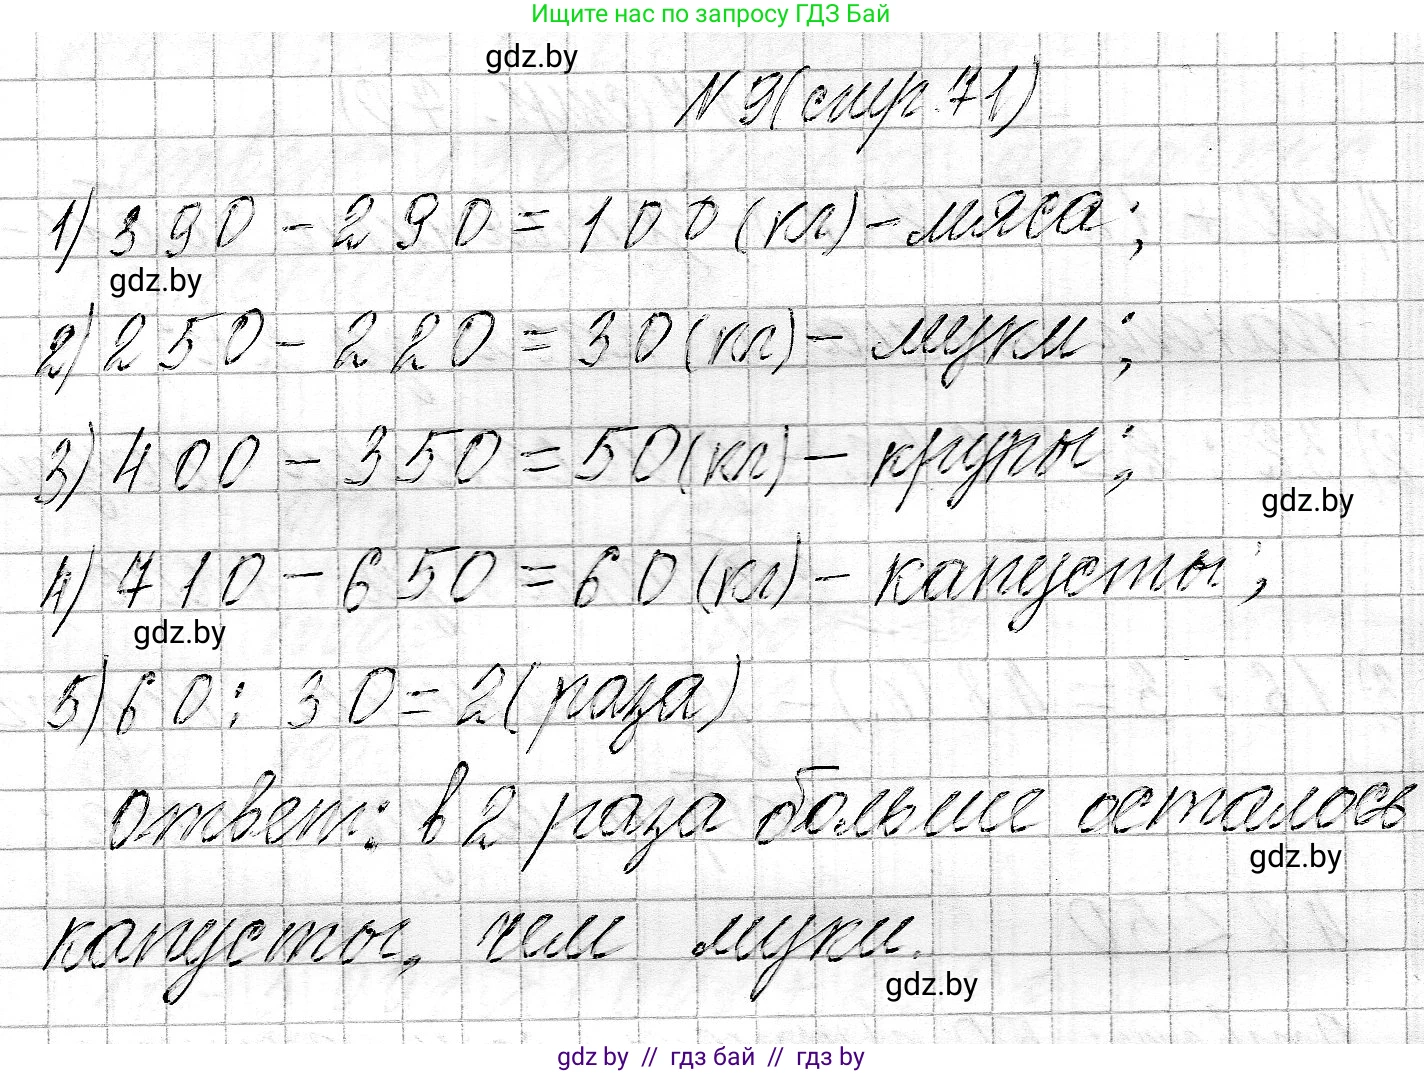 Ищите нас по запросу ГДЗ Бай
gdz.by
N 9(стр.71)
1) 390 - 290 = 100 (кг) - мяса;
gdz.by
2) 250 - 220 = 30 (кг) - муки;
3) 400 - 350 = 50 (кг) - крупы;
gdz.by
4) 710 - 650 = 60 (кг) - капусты;
gdz.by
5) 60 : 30 = 2 (раза)
ответ: в 2 раза больше осталось
gdz.by
капусты, чем муки.
gdz.by
gdz by // гдз бай // гдз by